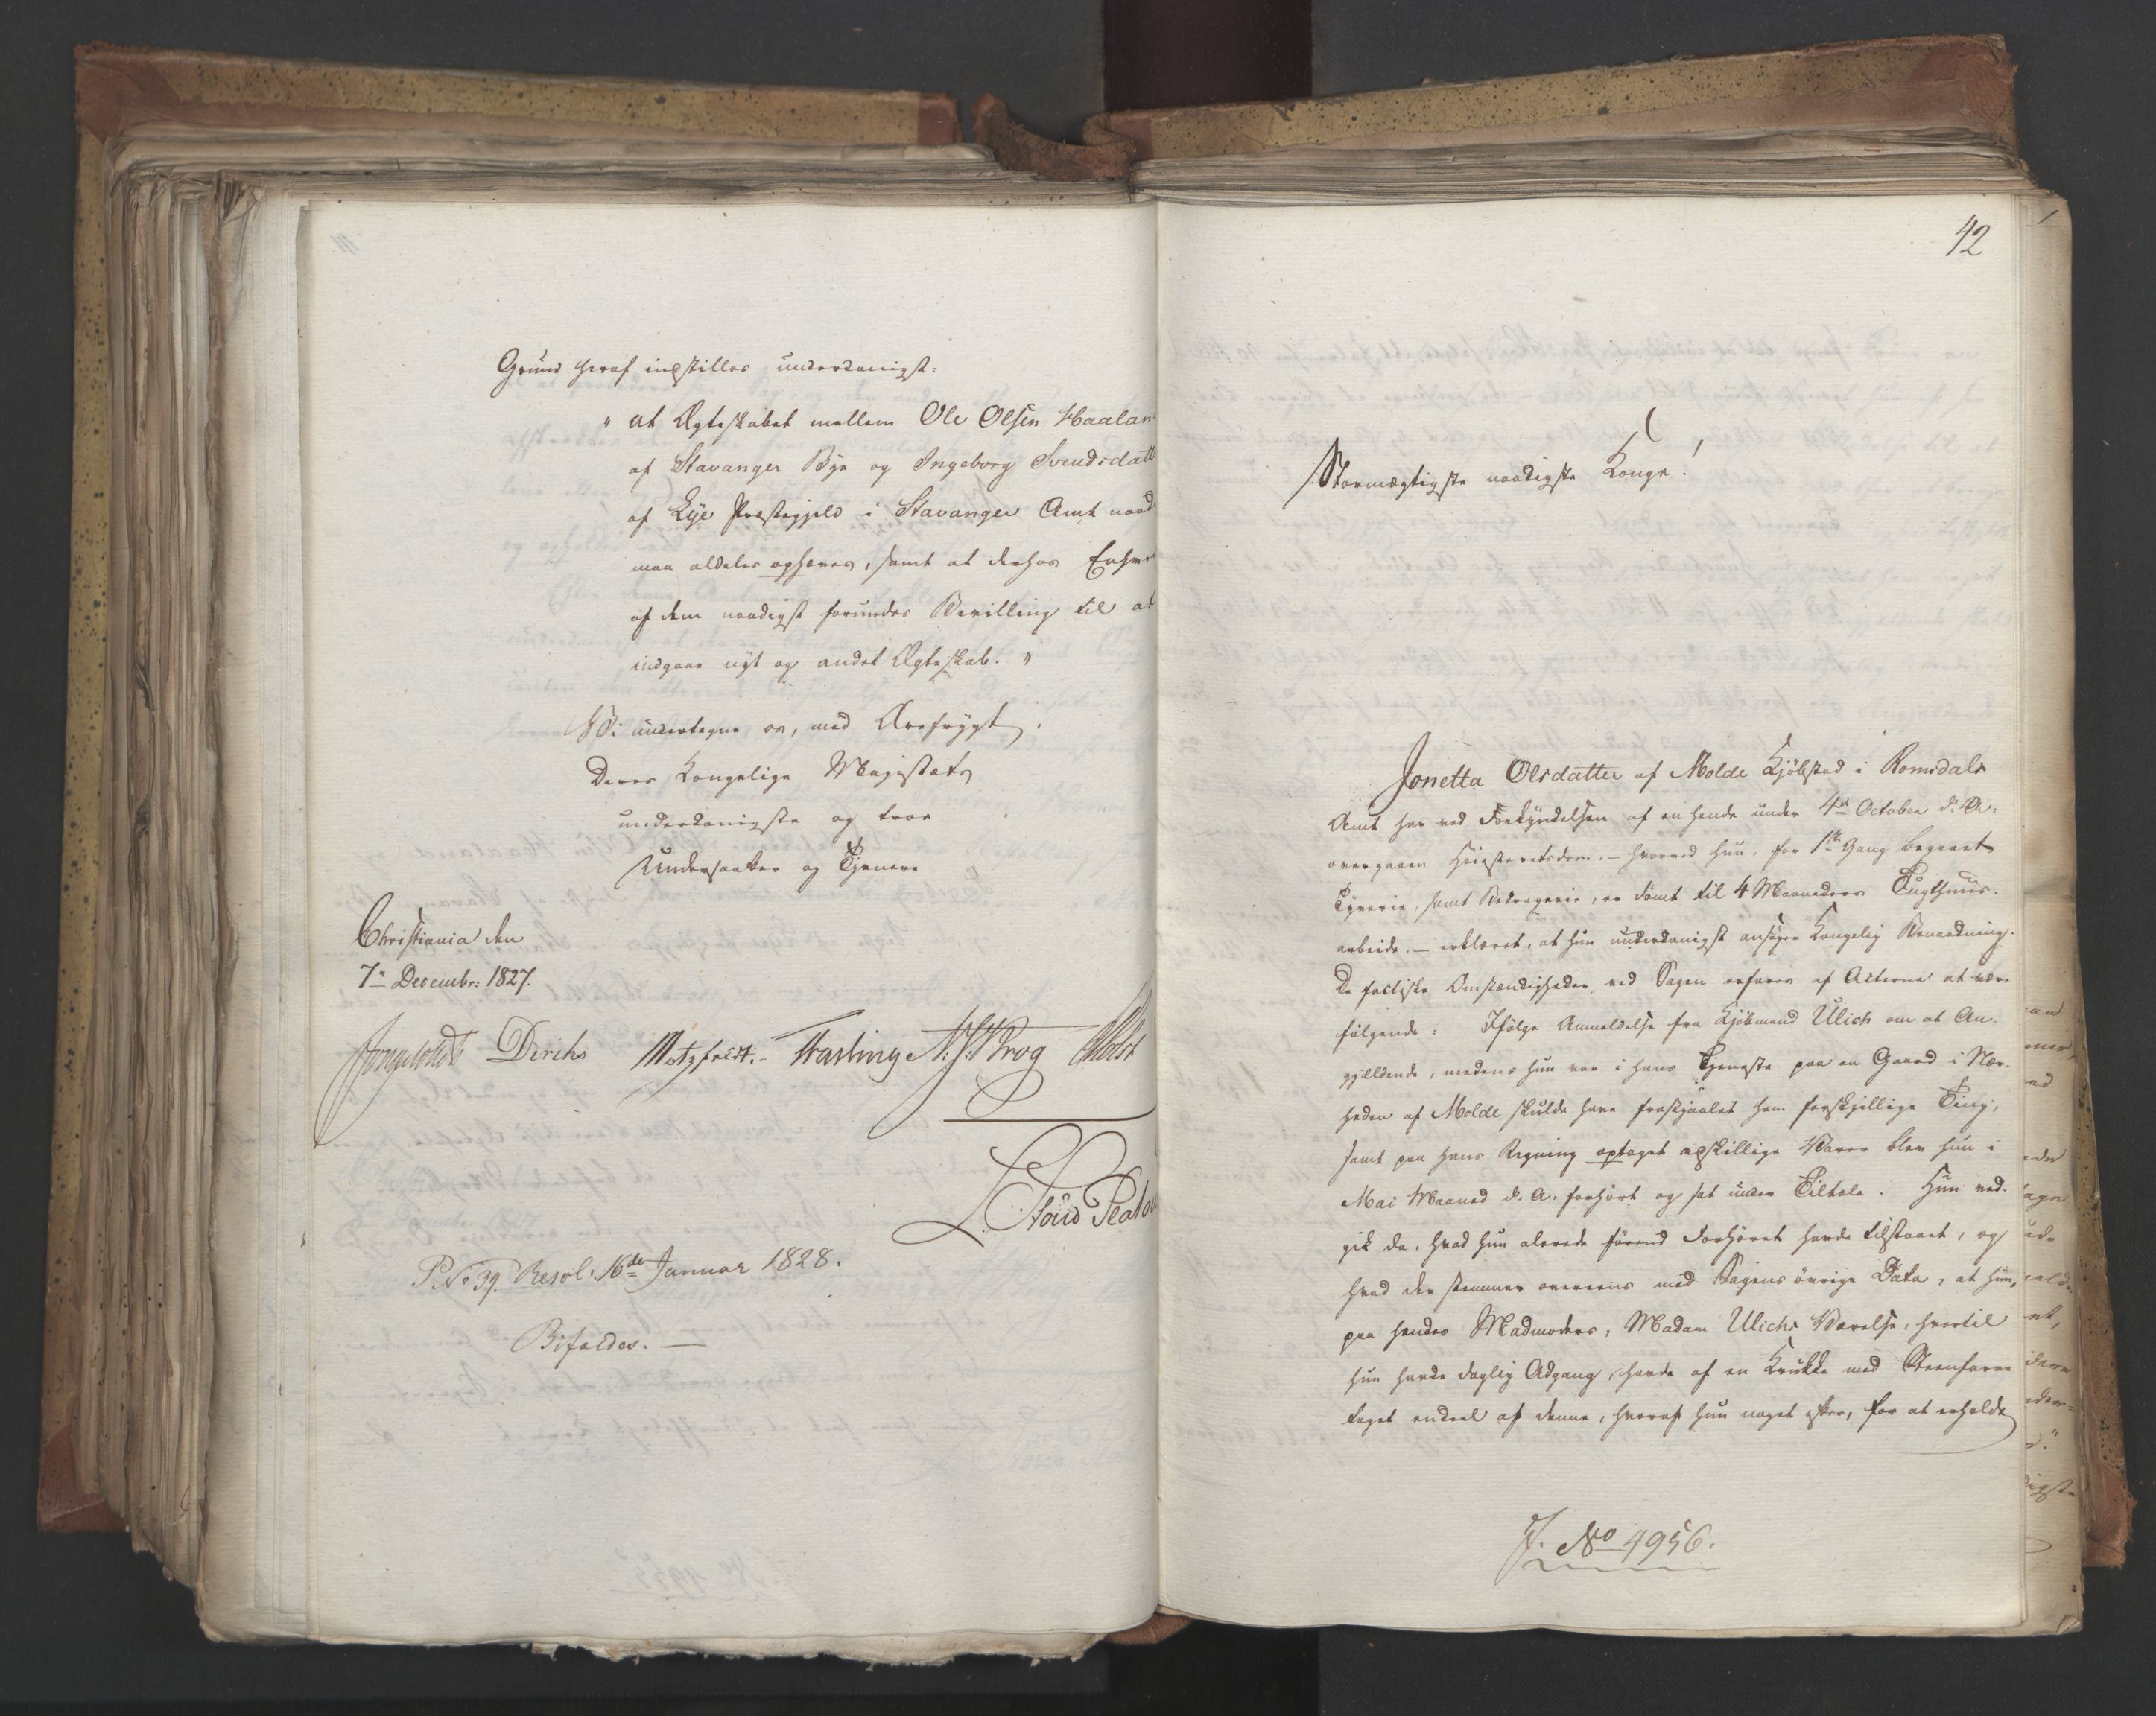 Grund heraf indstilles underdanigst:
" at Ægteskabet mellem Ole Olsen Haaland
af Stavanger Bye og Ingeborg Svendsdatt
af Lye Præstegjeld i Stavanger Amt naad
maa aldeles ophæves, samt at derhos Enhver
af dem naadigst forundes Bevilling til at
indgaae nyt og andet Ægteskab. "
Vi undertegne os, med Ærefrygt,
Deres Kongelige Majestæts
underdanigste og troe
Undersaatter og Tjenere
Christiania den
7de Decembr: 1827.
Diriks Motzfeldt. Fasting N: J: Krog Holst
P. No 39. Resol: 16de Januar 1828.
Bifaldes. —
42
Stormægtigste naadigste Konge!
Jonetta Olsdatter af Molde Kjöbstad i Romsdals
Amt har ved Forkyndelsen af en hende under 4de October d: A:
overgaaen Höiesteretsdom, – hvorved hun, for 1ste Gang begaaet
Tyverie, samt Bedragerie, er dömt til 4 Maaneders Tugthuus-
arbeide, – erklæret, at hun underdanigst ansöger Kongelig Benaadning.
De factiske Omstændigheder ved Sagen erfares af Acterne at være
fölgende: Ifölge Anmeldelse fra Kjöbmand Ulich om at An-
gjeldende, medens hun var i hans Tjeneste paa en Gaard i Nær-
heden af Molde skulde have frastjaalet ham forskjellige Ting,
samt paa hans Regning optaget adskillige Varer blev hun i
Mai Maaned d. A. forhört og sat under Tiltale. Hun ved-
gik da, hvad hun alerede förend Forhöret havde tilstaaet, og
hvad der stemmer overeens med Sagens övrige Data, at hun,
paa hendes Madmoders, Madam Ulichs Værelse, hvortil
hun havde daglig Adgang, havde af en Krukke med Steenfarve
taget endeel af denne, hvoraf hun noget efter, for at erholde
J. No 4956.